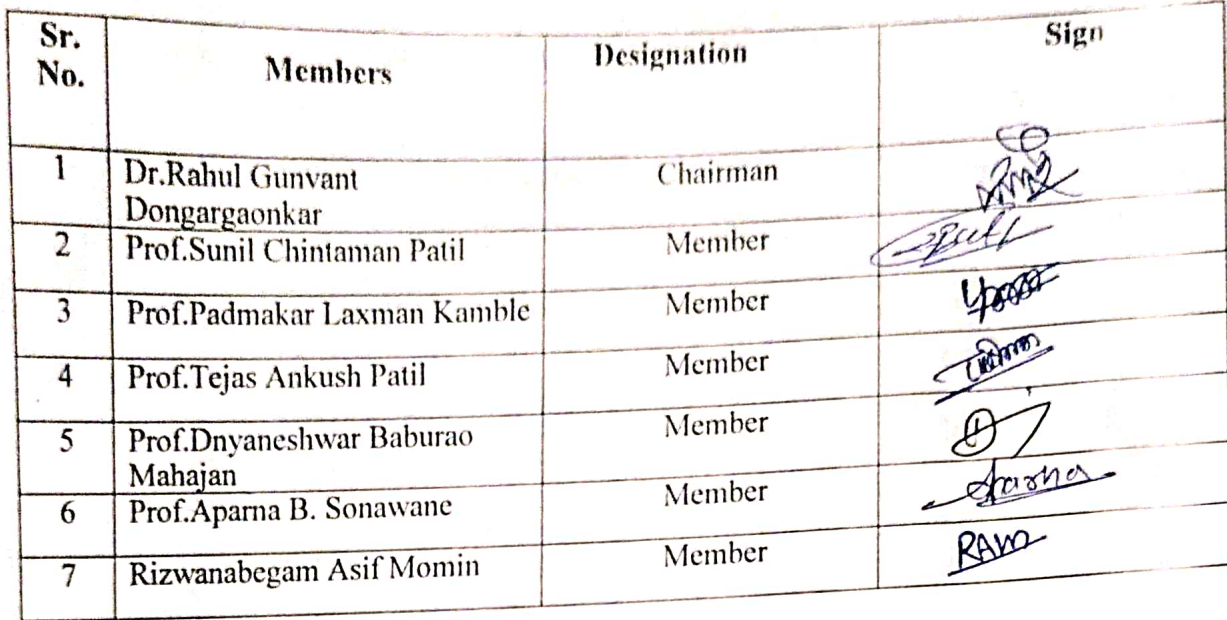 Sr. No. Members Designation Sign
1 Dr.Rahul Gunvant Dongargaonkar Chairman
2 Prof.Sunil Chintaman Patil Member
3 Prof.Padmakar Laxman Kamble Member
4 Prof.Tejas Ankush Patil Member
5 Prof.Dnyaneshwar Baburao Mahajan Member
6 Prof.Aparna B. Sonawane Member Aparna
7 Rizwanabegam Asif Momin Member